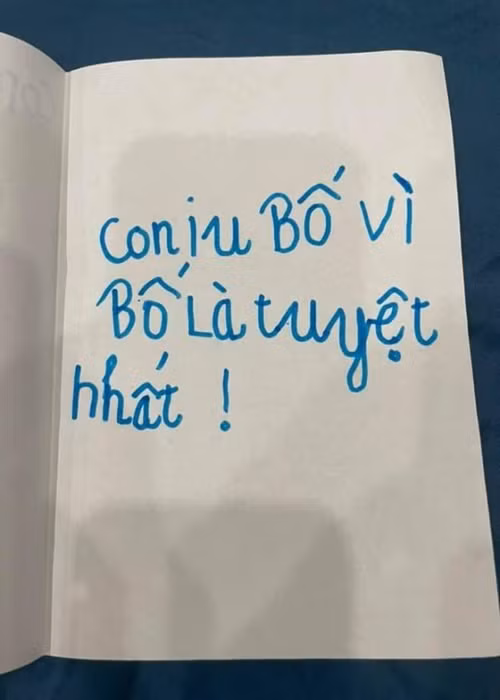 con iu Bố vì
Bố Là tuyệt
nhất !